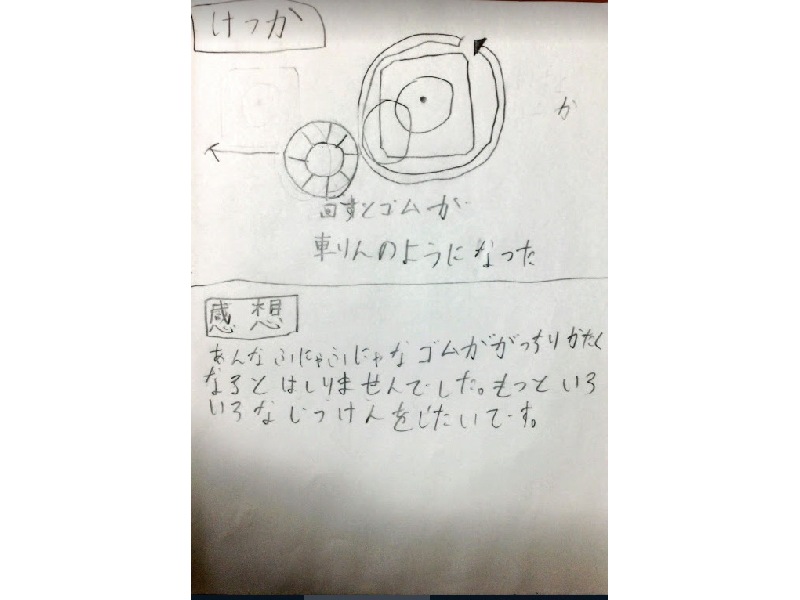 けっか
か
回すとゴムが
車りんのようになった
感想
あんなふにゃふにゃなゴムががっちりかたく
なるとはしりませんでした。もっといろ
いろなじっけんをしたいです。